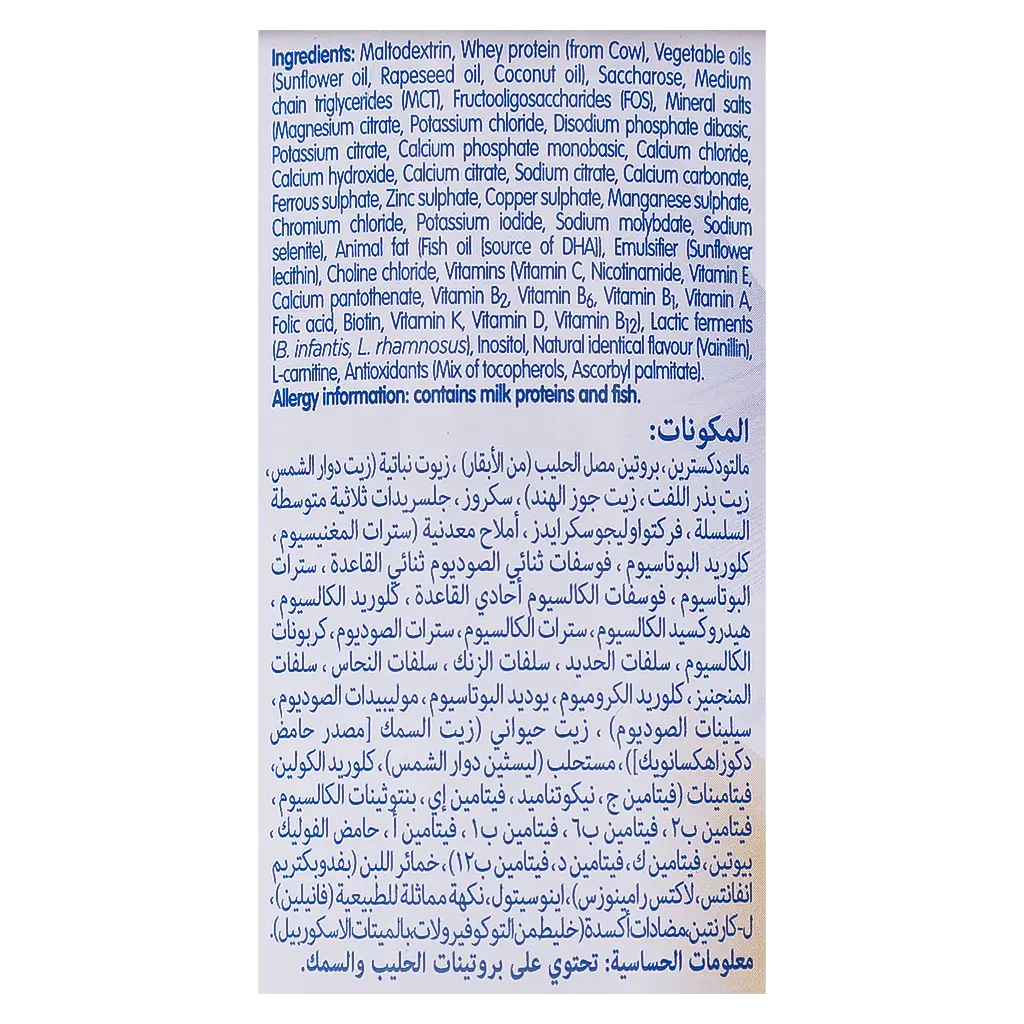 Ingredients: Maltodextrin, Whey protein (from Cow), Vegetable oils
(Sunflower oil, Rapeseed oil, Coconut oil), Saccharose, Medium
chain triglycerides (MCT), Fructooligosaccharides (FOS), Mineral salts
(Magnesium citrate, Potassium chloride, Disodium phosphate dibasic,
Potassium citrate, Calcium phosphate monobasic, Calcium chloride,
Calcium hydroxide, Calcium citrate, Sodium citrate, Calcium carbonate,
Ferrous sulphate, Zinc sulphate, Copper sulphate, Manganese sulphate,
Chromium chloride, Potassium iodide, Sodium molybdate, Sodium
selenite), Animal fat (Fish oil [source of DHA]), Emulsifier (Sunflower
lecithin), Choline chloride, Vitamins (Vitamin C, Nicotinamide, Vitamin E,
Calcium pantothenate, Vitamin B2, Vitamin B6, Vitamin B1, Vitamin A,
Folic acid, Biotin, Vitamin K, Vitamin D, Vitamin B12), Lactic ferments
(B. infantis, L. rhamnosus), Inositol, Natural identical flavour (Vainillin),
L-carnitine, Antioxidants (Mix of tocopherols, Ascorbyl palmitate).
Allergy information: contains milk proteins and fish.
المكونات:
مالتودكسترين، بروتين مصل الحليب (من الأبقار) ، زيوت نباتية (زيت دوار الشمس،
زيت بذر اللفت، زيت جوز الهند) ، سكروز ، جلسريدات ثلاثية متوسطة
السلسلة ، فركتواوليجوسكرايدز ، أملاح معدنية (سترات المغنيسيوم ،
كلوريد البوتاسيوم ، فوسفات ثنائي الصوديوم ثنائي القاعدة ، سترات
البوتاسيوم ، فوسفات الكالسيوم أحادي القاعدة ، كلوريد الكالسيوم ،
هيدروكسيد الكالسيوم، سترات الكالسيوم، سترات الصوديوم، كربونات
الكالسيوم ، سلفات الحديد ، سلفات الزنك ، سلفات النحاس ، سلفات
المنجنيز ، كلوريد الكروميوم ، يوديد البوتاسيوم ، موليبيدات الصوديوم ،
سيلينات الصوديوم) ، زيت حيواني (زيت السمك [مصدر حامض
دكوزاهكسانويك])، مستحلب (ليسثين دوار الشمس) ، كلوريد الكولين،
فيتامينات (فيتامين ج ، نيكوتناميد ، فيتامين إي ، بنتوثينات الكالسيوم ،
فيتامين ب٢ ، فيتامين ب٦ ، فيتامين ب١ ، فيتامين أ ، حامض الفوليك ،
بيوتين، فيتامين ك، فيتامين د، فيتامين ب١٢)، خمائر اللبن (بفدوبكتريم
انفانتس،لاكتس رامينوزس)، اينوسيتول، نكهة مماثلة للطبيعية (فانيلين)،
ل-كارنتين،مضادات أكسدة(خليط من التوكوفيرولات،بالميتات الاسكوربيل).
معلومات الحساسية: تحتوي على بروتينات الحليب والسمك.